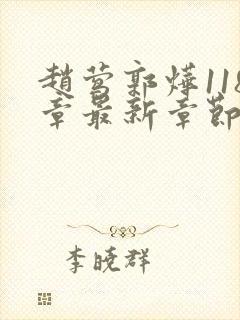 趙莺郭燁118
章最新章節
李曉群